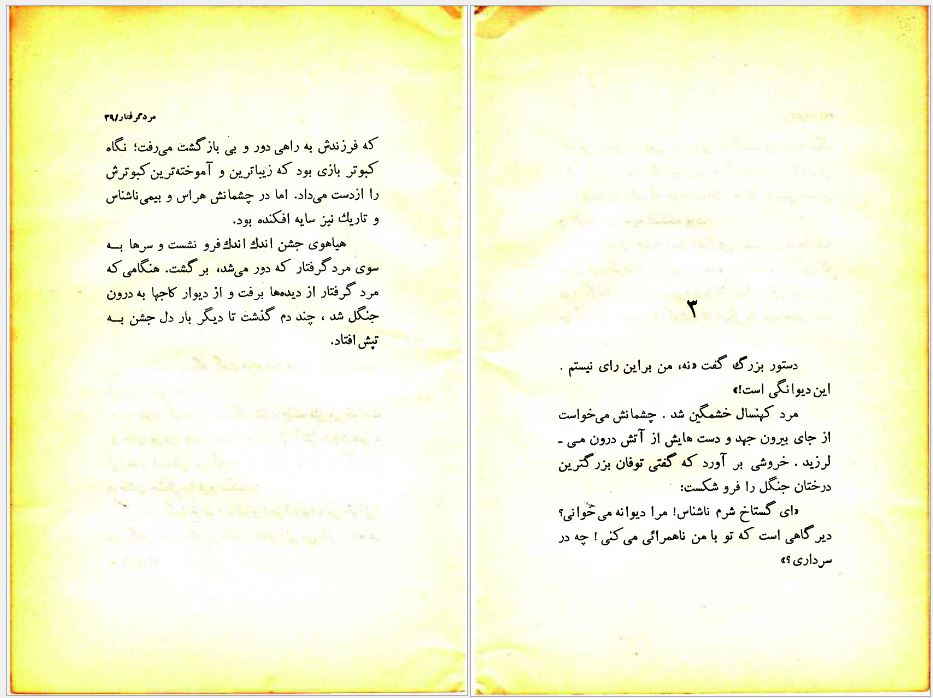 مرد گرفتار/۳۹
که فرزندش به راهی دور و بی بازگشت می‌رفت؛ نگاه
کبوتر بازی بود که زیباترین و آموخته‌ترین کبوترش
را ازدست می‌داد. اما در چشمانش هراس و بیمی‌ناشناس
و تاریك نیز سایه افکنده بود.
هیاهوی جشن اندك اندك فرو نشست و سرها بـــه
سوی مرد گرفتار که دور می‌شد، برگشت. هنگامی‌که
مرد گرفتار از دیده‌ها برفت و از دیوار کاجها به درون
جنگل شد ، چند دم گذشت تا دیگر بار دل جشن بـــه
تپش افتاد.
۳
دستور بزرگ گفت «نه، من براین رای نیستم .
این دیوانگی است!»
مرد کهنسال خشمگین شد . چشمانش می‌خواست
از جای بیرون جهد و دست هایش از آتش درون مـی ـ
لرزید . خروشی بر آورد که گفتی توفان بزرگترین
درختان جنگل را فرو شکست:
«ای گستاخ شرم ناشناس! مرا دیوانه می‌خوانی؟
دیرگاهی است که تو با من ناهمرائی می‌کنی! چه در
سرداری؟»